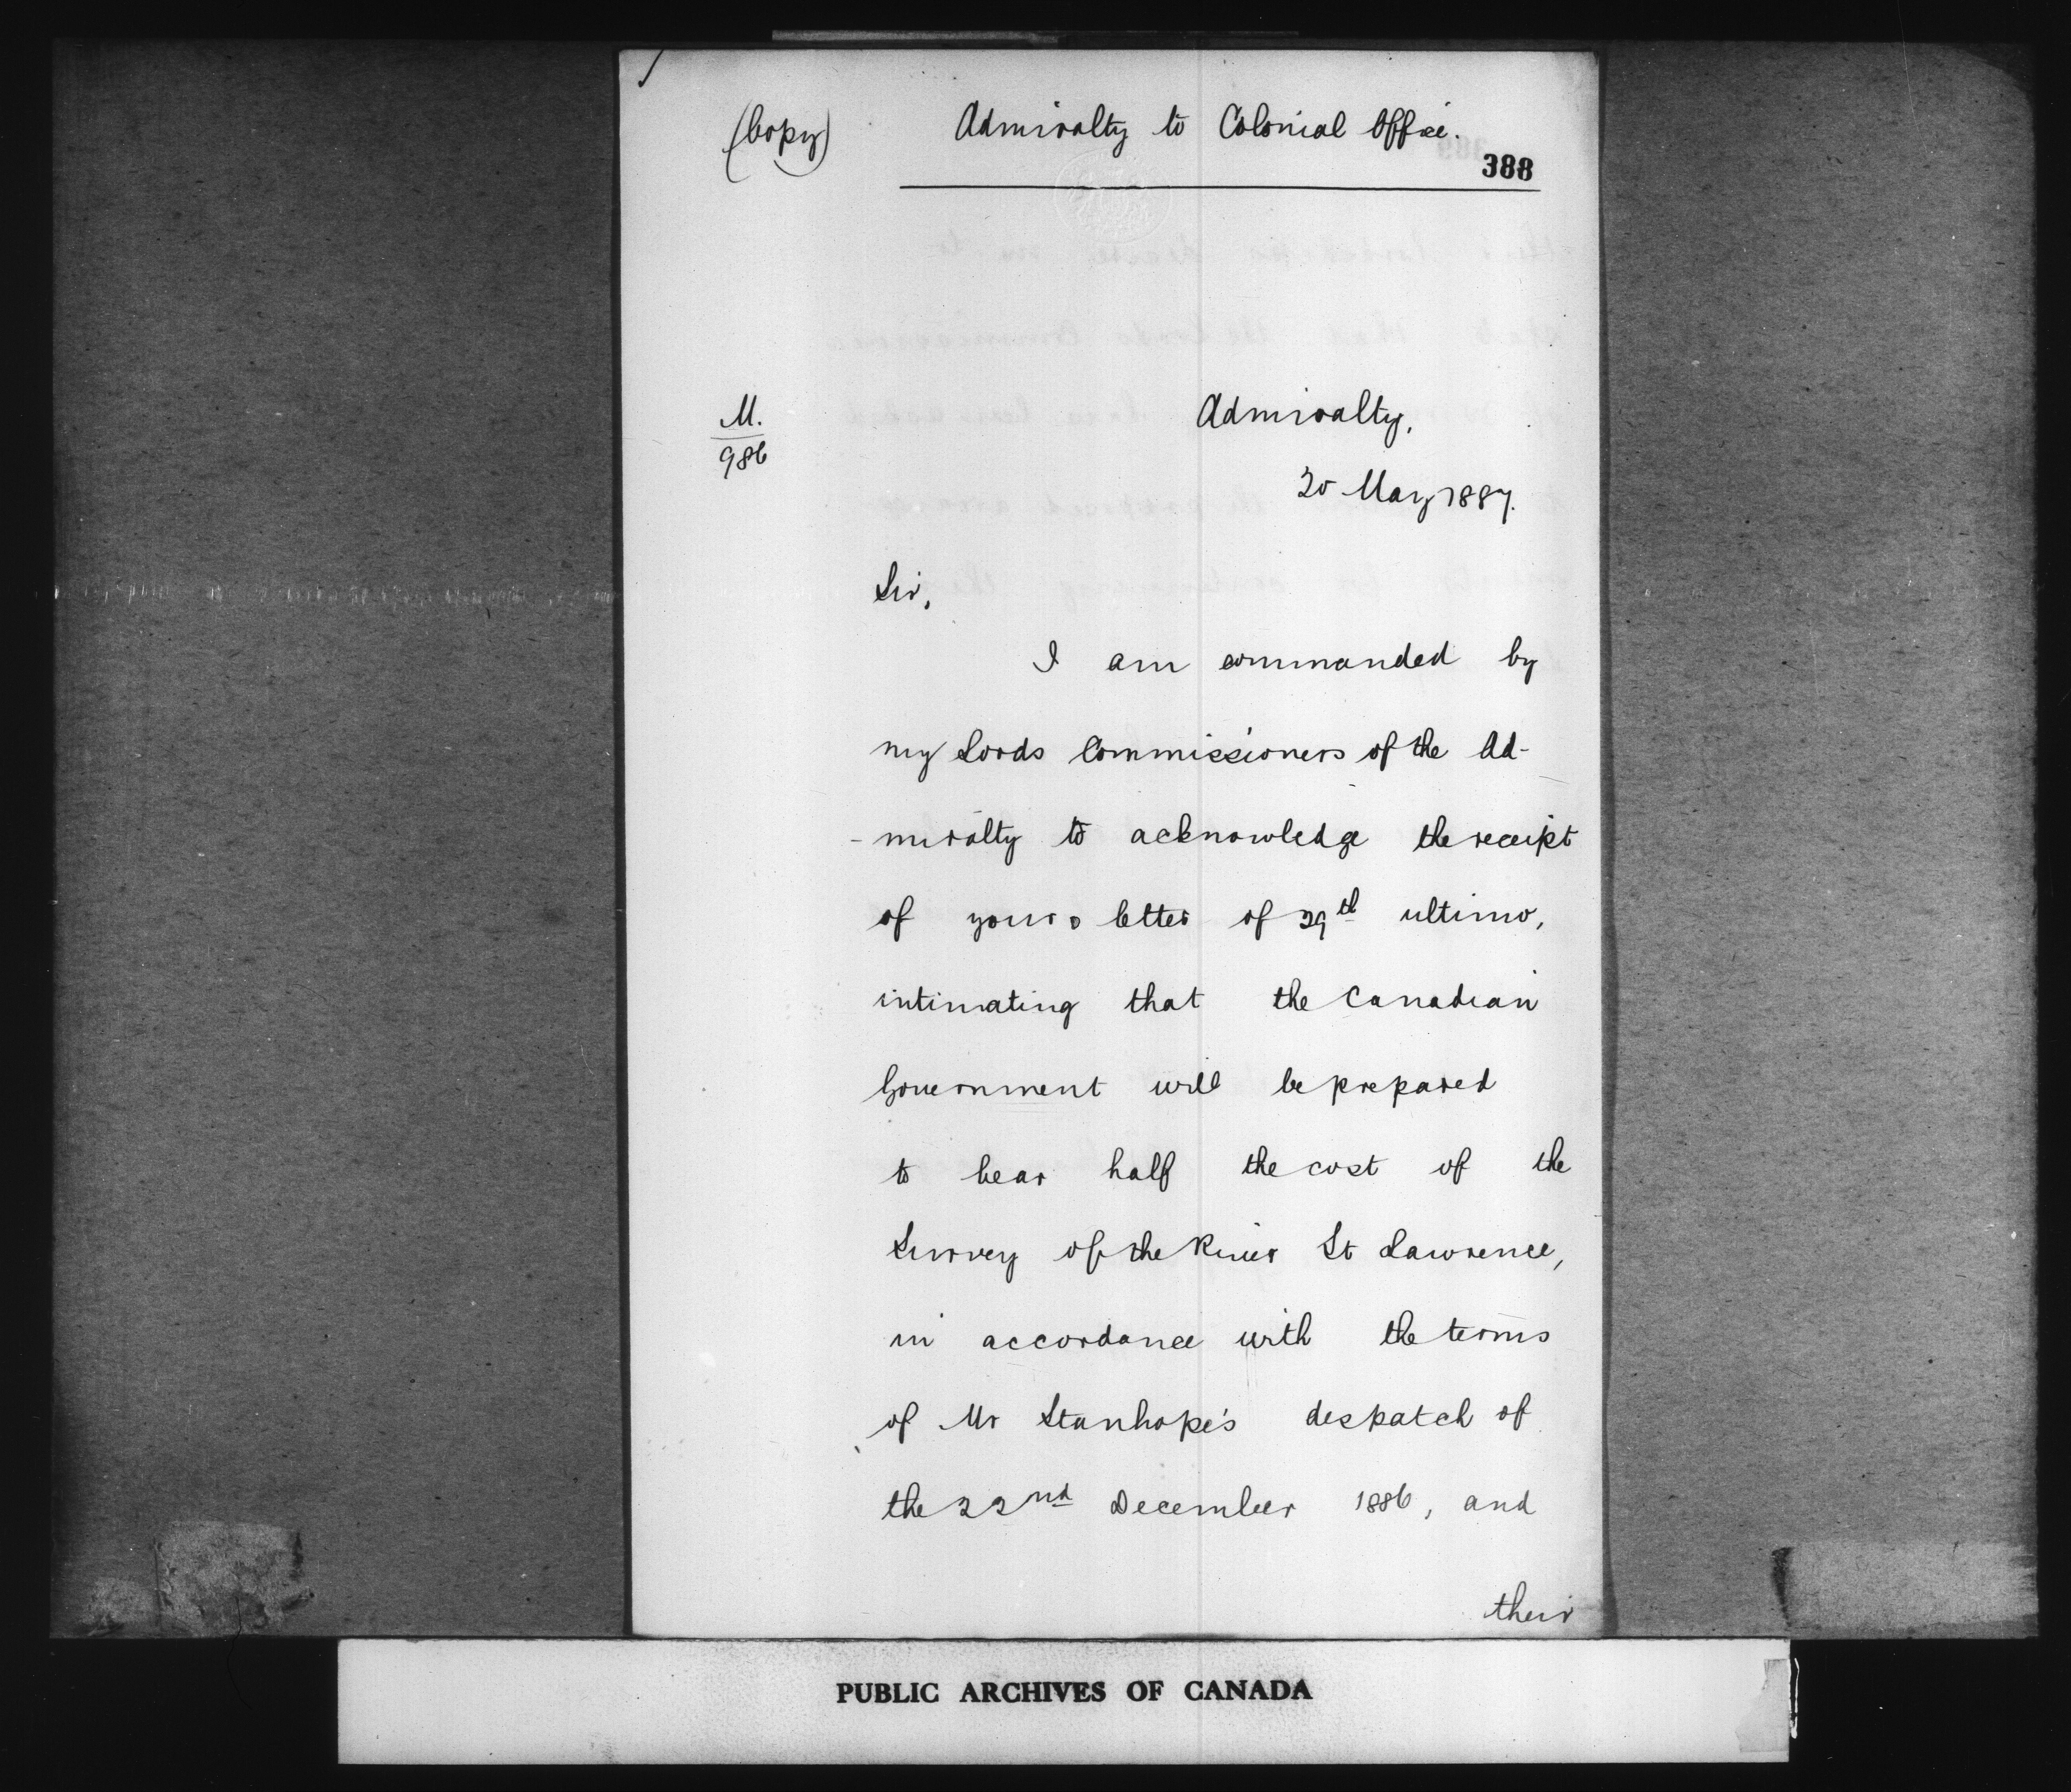 (Copy)
Admiralty to Colonial Office.
388
M.
986
Admiralty,
20 May 1887.
Sir,
I am commanded by
my Lords Commissioners of the Ad-
-miralty to acknowledge the receipt
of your letter of 29th ultimo,
intimating that the Canadian
Government will be prepared
to bear half the cost of the
Survey of the River St Lawrence,
in accordance with the terms
of Mr Stanhope's despatch of
the 22nd December 1886, and
their
PUBLIC ARCHIVES OF CANADA